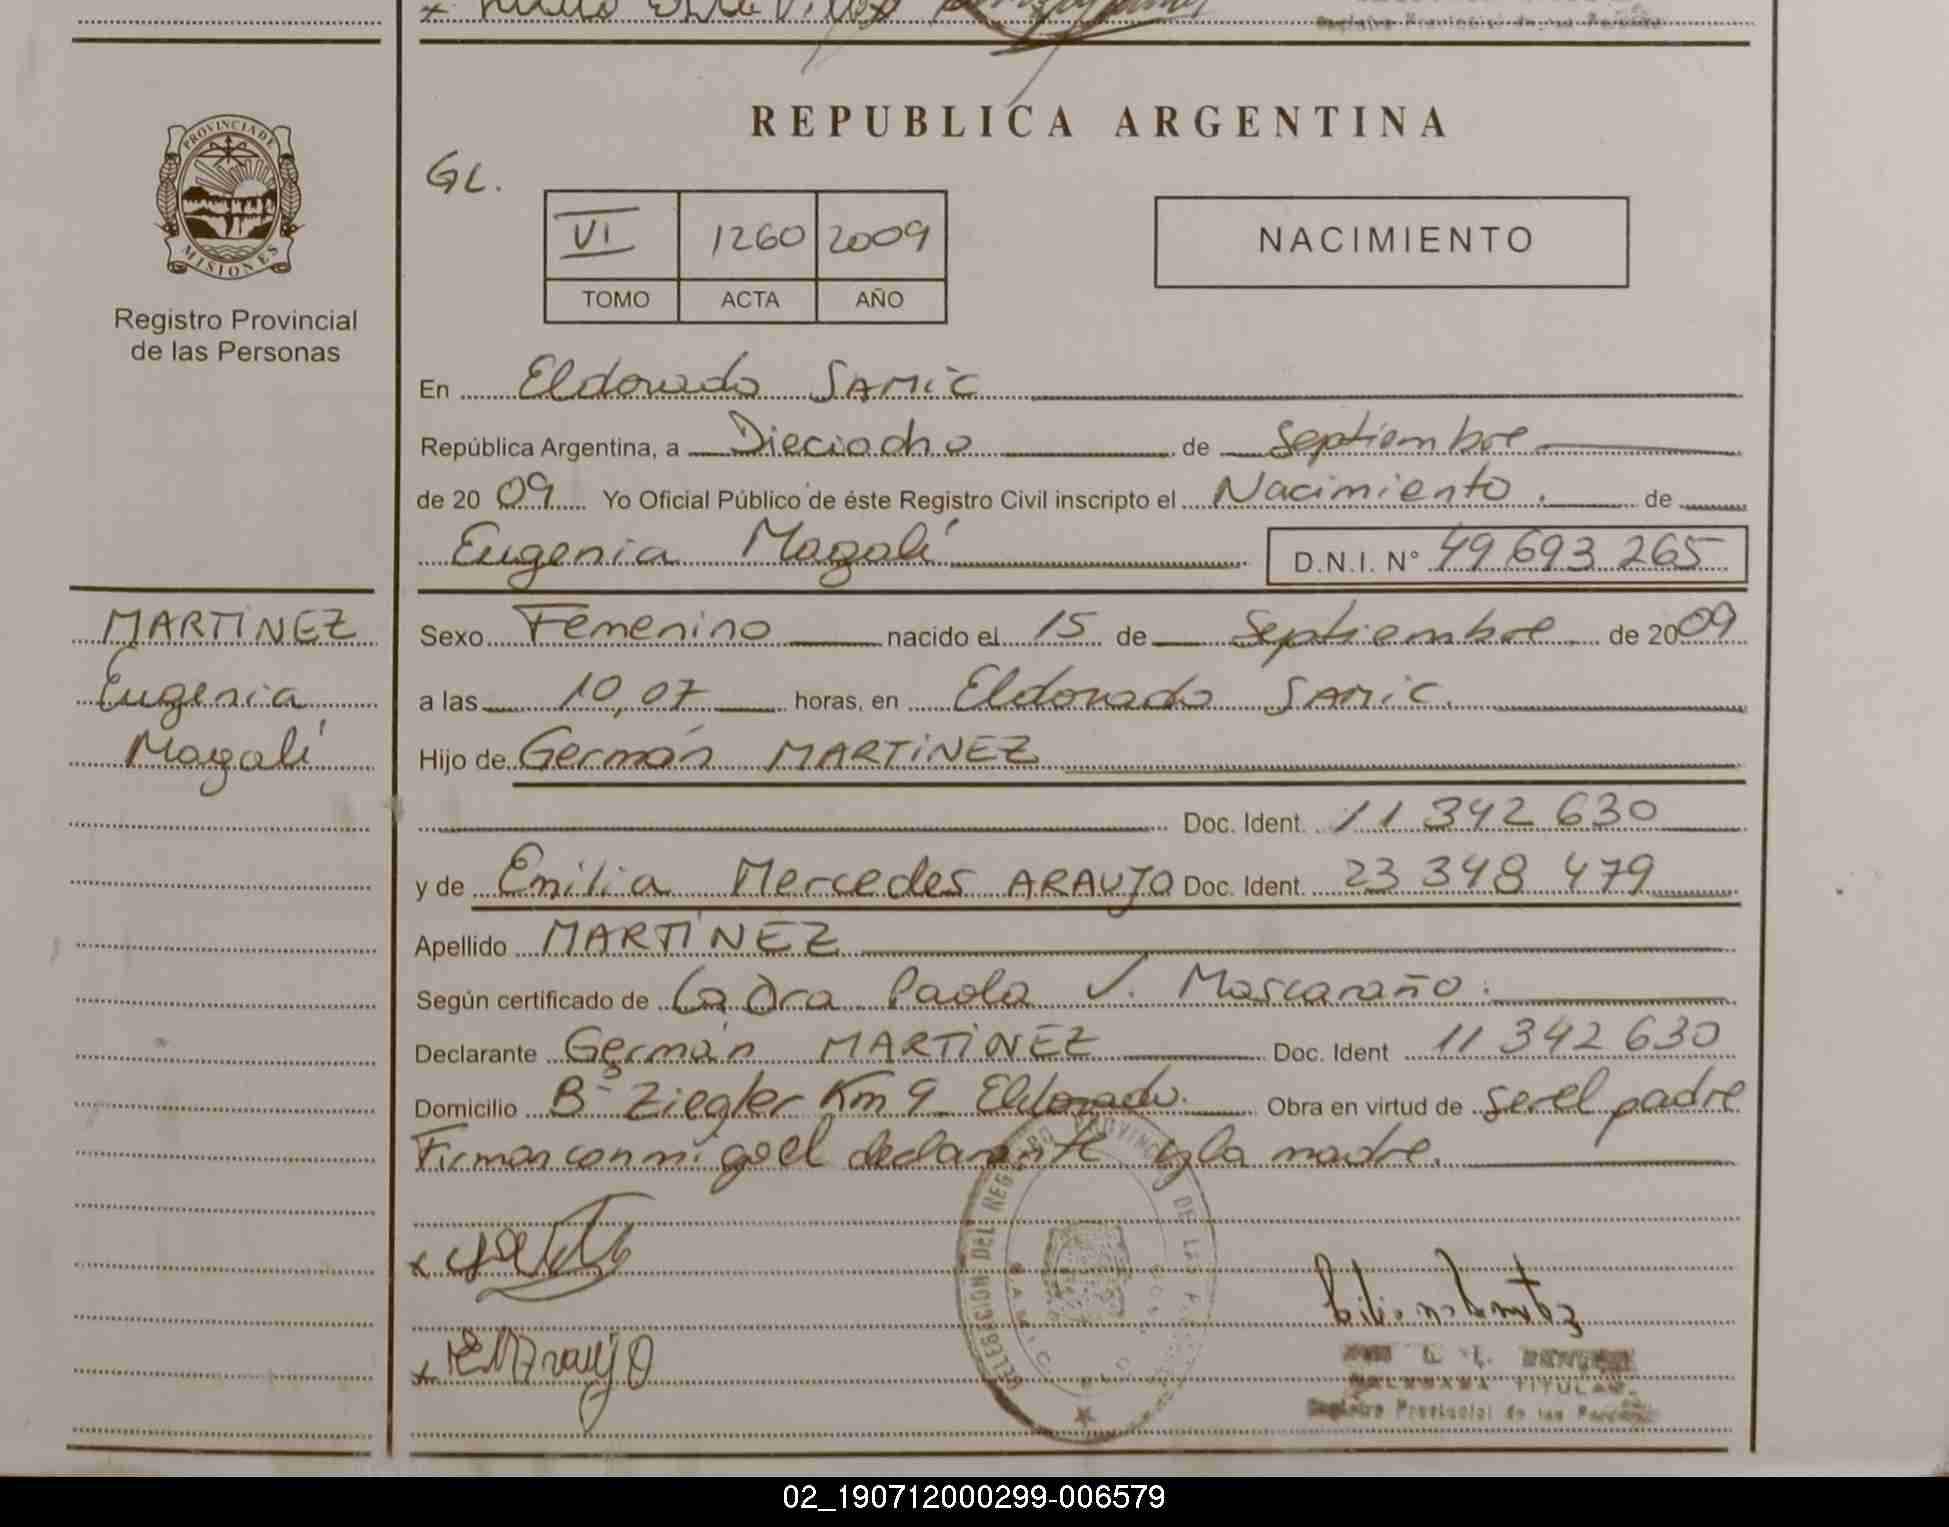 REPUBLICA ARGENTINA
PROVINCIA DE
MISIONES
Registro Provincial
de las Personas
GL.
VI 1260 2009
TOMO ACTA AÑO
NACIMIENTO
En Eldorado SAMIC
República Argentina, a Dieciocho de Septiembre
de 2009 Yo Oficial Público de éste Registro Civil inscripto el Nacimiento. de
Eugenia Magalí D.N.I. N° 49 693 265
MARTINEZ
Eugenia
Magalí
Sexo Femenino nacido el 15 de Septiembre de 2009
a las 10,07 horas, en Eldorado SAMIC.
Hijo de Germán MARTINEZ
Doc. Ident. 11 342 630
y de Emilia Mercedes ARAUJO Doc. Ident. 23 348 479
Apellido MARTINEZ
Según certificado de La Dra Paola V. Mascaraño.
Declarante Germán MARTINEZ Doc. Ident 11 342 630
Domicilio B° Ziegler Km 9 Eldorado. Obra en virtud de ser el padre
Firman conmigo el declarante y la madre.
x
x EMAraujo
DELEGACION DEL REGISTRO PROVINCIAL DE LAS
TITULAR
Registro Provincial de las Personas
02_190712000299-006579